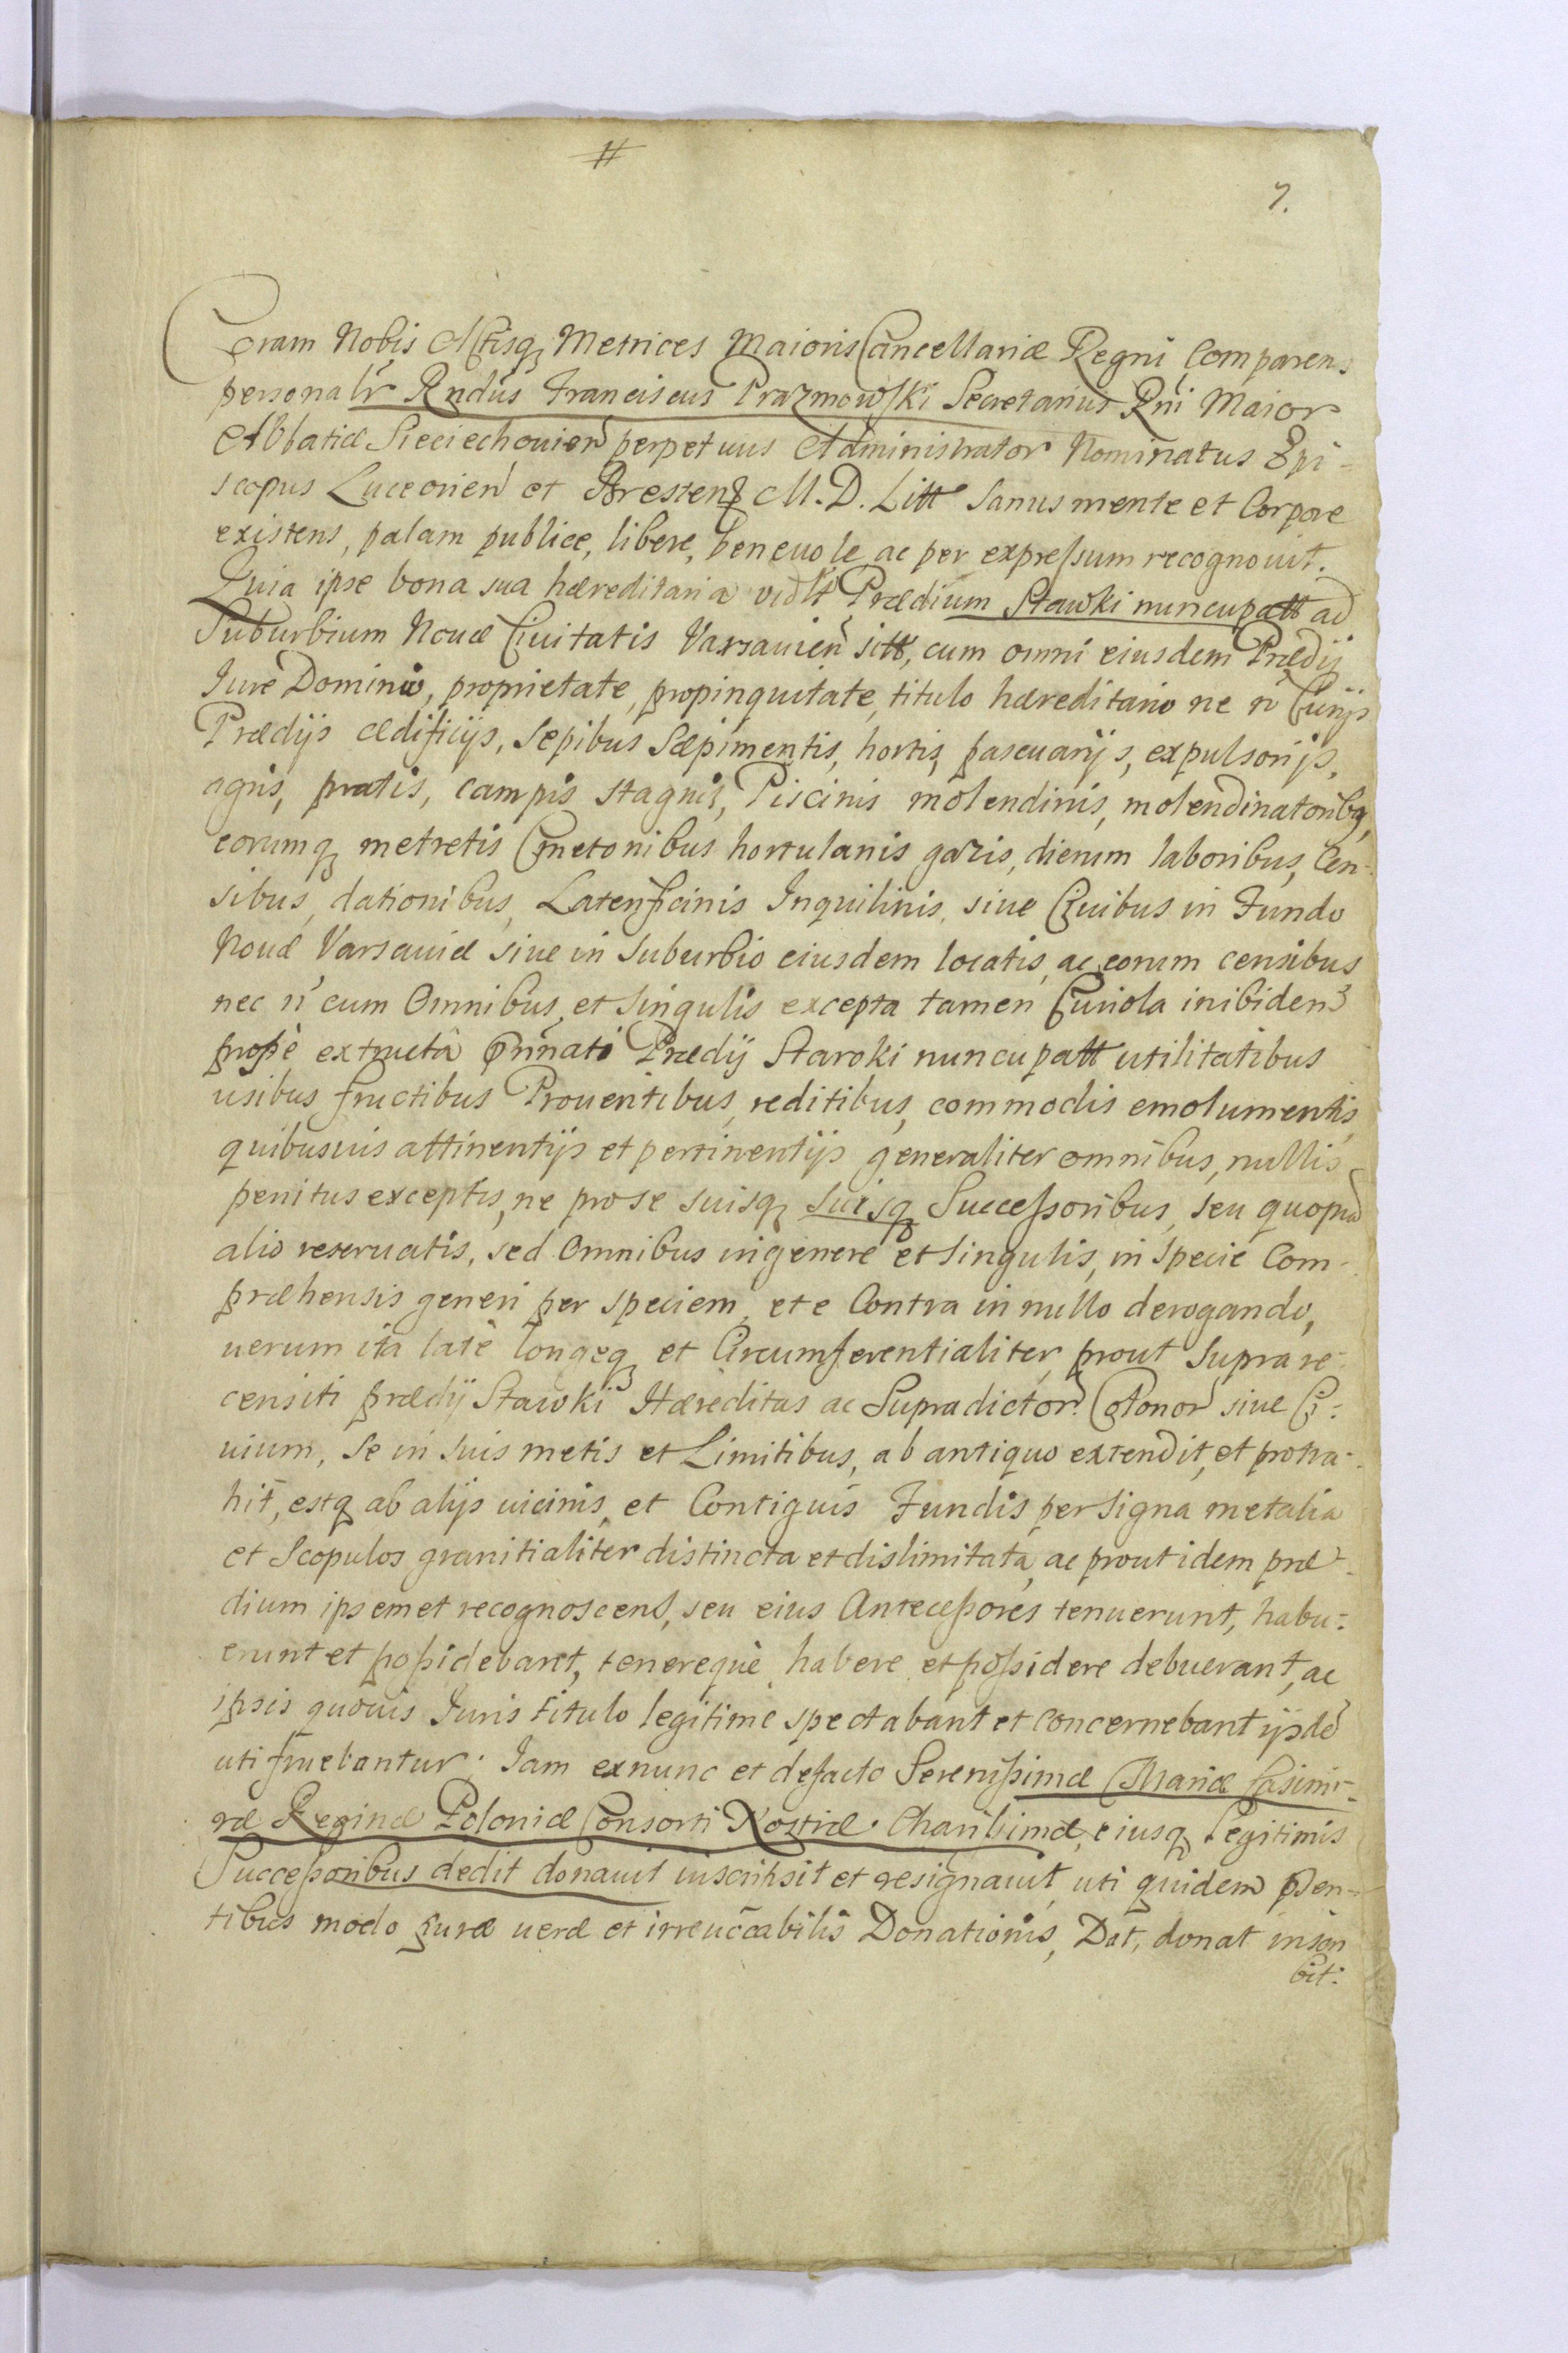 #
7.
Coram Nobis Actisq Metrices Maioris Cancellariæ Regni Comparens
personalr Rndus Franciscus Prazmowski Secretarius Rni Maior
Abbatiæ Sieciechouien perpetuus Administrator Nominatus Epi-
scopus Luceorien et Bresten M. D. Litt Sanus mente et Corpore
existens, palam publice, libere, beneuole ac per expressum recognouit.
Quia ipse bona sua hæreditaria vidlt Prædium Stawki nuncupatt ad
Suburbium Nouæ Ciuitatis Varsauien sitt, cum omni eiusdem Prædij
Iure Dominio, proprietate, propinquitate, titulo hæreditario ne n Curijs
Prædijs ædificijs, Sepibus Sæpimentis, hortis, pascuarijs, expulsorijs,
agris, pratis, campis stagnis, Piscinis molendinis, molendinatoribq,
eorumq metretis Cmetonibus hortulanis gazis, dierum laboribus, Cen-
sibus, dationibus, Laterificinis Inquilinis, siue Ciuibus in Fundo
Nouæ Varsauiæ siue in Suburbio eiusdem locatis, ac eorum censibus
nec n cum Omnibus, et Singulis excepta tamen Curiola inibidem
propè extructâ prænnati Prædij Stawki nuncupatt utilitatibus
usibus fructibus Prouentibus, reditibus, commodis emolumentis,
quibusuis attinentijs et pertinentijs generaliter omnibus, nullis
penitus exceptis, ne pro se suisq suisq Successoribus, seu quopiã
alio reseruatis, sed Omnibus in genere et Singulis, in Specie Com-
præhensis generi per speciem, et e Contra in nullo derogando,
uerum ita latè longeq et Circumferentialiter prout Supra re-
censiti prædij Stawki Hæreditas ac Supradictor Colonor siue Ci-
uium, Se in Suis metis et Limitibus, ab antiquo extendit, et protra-
hit, estq ab alijs uicinis, et Contiguis Fundis per Signa metalia
et Scopulos granitialiter distincta et dislimitata, ac prout idem præ-
dium ipsemet recognoscens, seu eius Antecessores tenuerunt, habu-
erunt et possidebant, tenerequè, habere et possidere debuerant, ac
ipsis quouis Iuris titulo legitimè spectabant et concernebant ijsdẽ
uti fruebantur. Iam exnunc et defacto Serenissimæ Mariæ Casimi-
ræ Reginæ Poloniæ Consorti Nostræ Charissimæ, eiusq Legitimis
Successoribus dedit donauit inscripsit et resignauit, uti quidem præsen-
tibus modo puræ ueræ et irreuocabilis Donationis, Dat, donat inscri
bit.